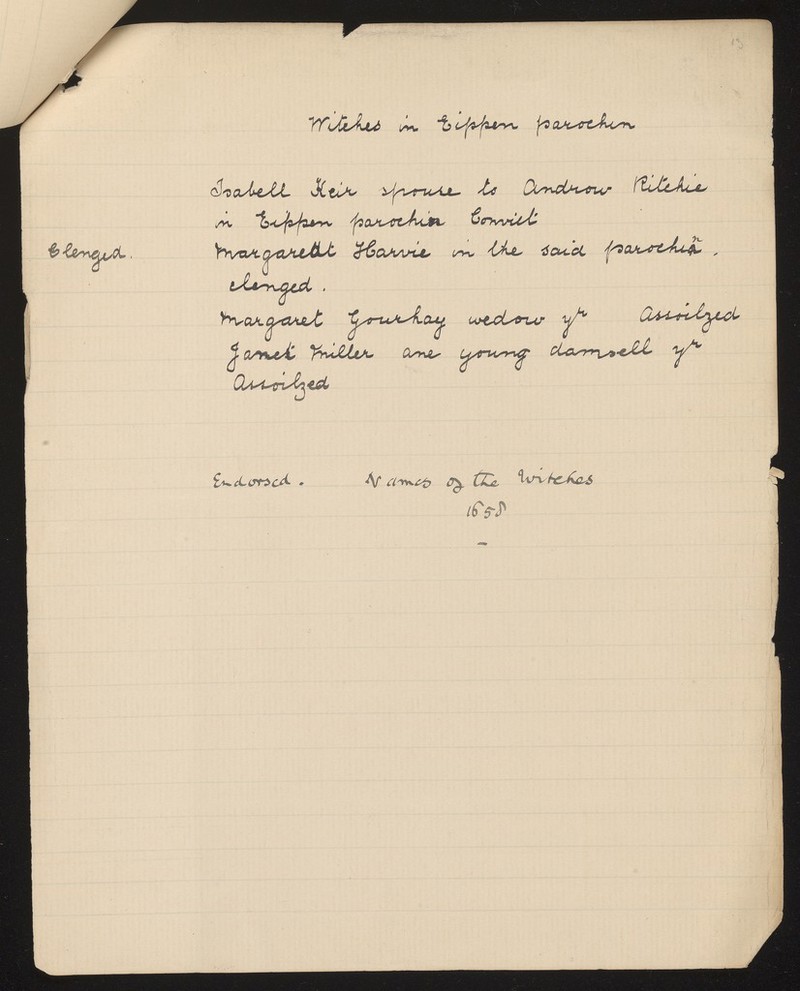 13
Witches in Eippen parochin
Isabell Keir spouse to Androw Ritchie
in Eippen parochin Convict
Clenged. Margarett Harvie in the said parochin.
clenged.
Margaret Gourlay wedow yr Assoilzed
Janet Miller ane young damsell yr
Assoilzed
Endorsed. Names of the Witches
1658